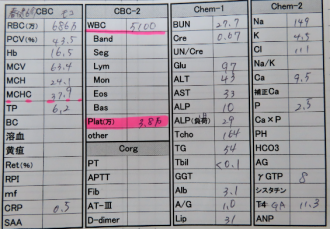 CBC CBC-2 Chem-1 Chem-2
RBC(万) 686.5 WBC 5100 BUN 27.7 Na 149
PCV(%) 43.5 Band Cre 0.67 K 4.5
Hb 16.5 Seg UN/Cre Cl 11.1
MCV 63.4 Lym Glu 97 Na/K
MCH 24.1 Mon ALT 43 Ca 9.5
MCHC 37.9 Eos AST 33 Ca補正
TP 6.2 Bas ALP 10 P 2.5
BC Plat(万) 3.8 ALP(負荷) 29 Ca×P
溶血 other Tcho 164 PH
黄疸 Corg TG HCO3
Ret(%) PT Tbil <0.1 AG
RPI APTT GGT γGTP 8
mf Fib Alb 3.1 シスタチン
CRP 0.5 AT-III A/G 1.0 T4 11.3
SAA D-dimer Lip 31 ANP